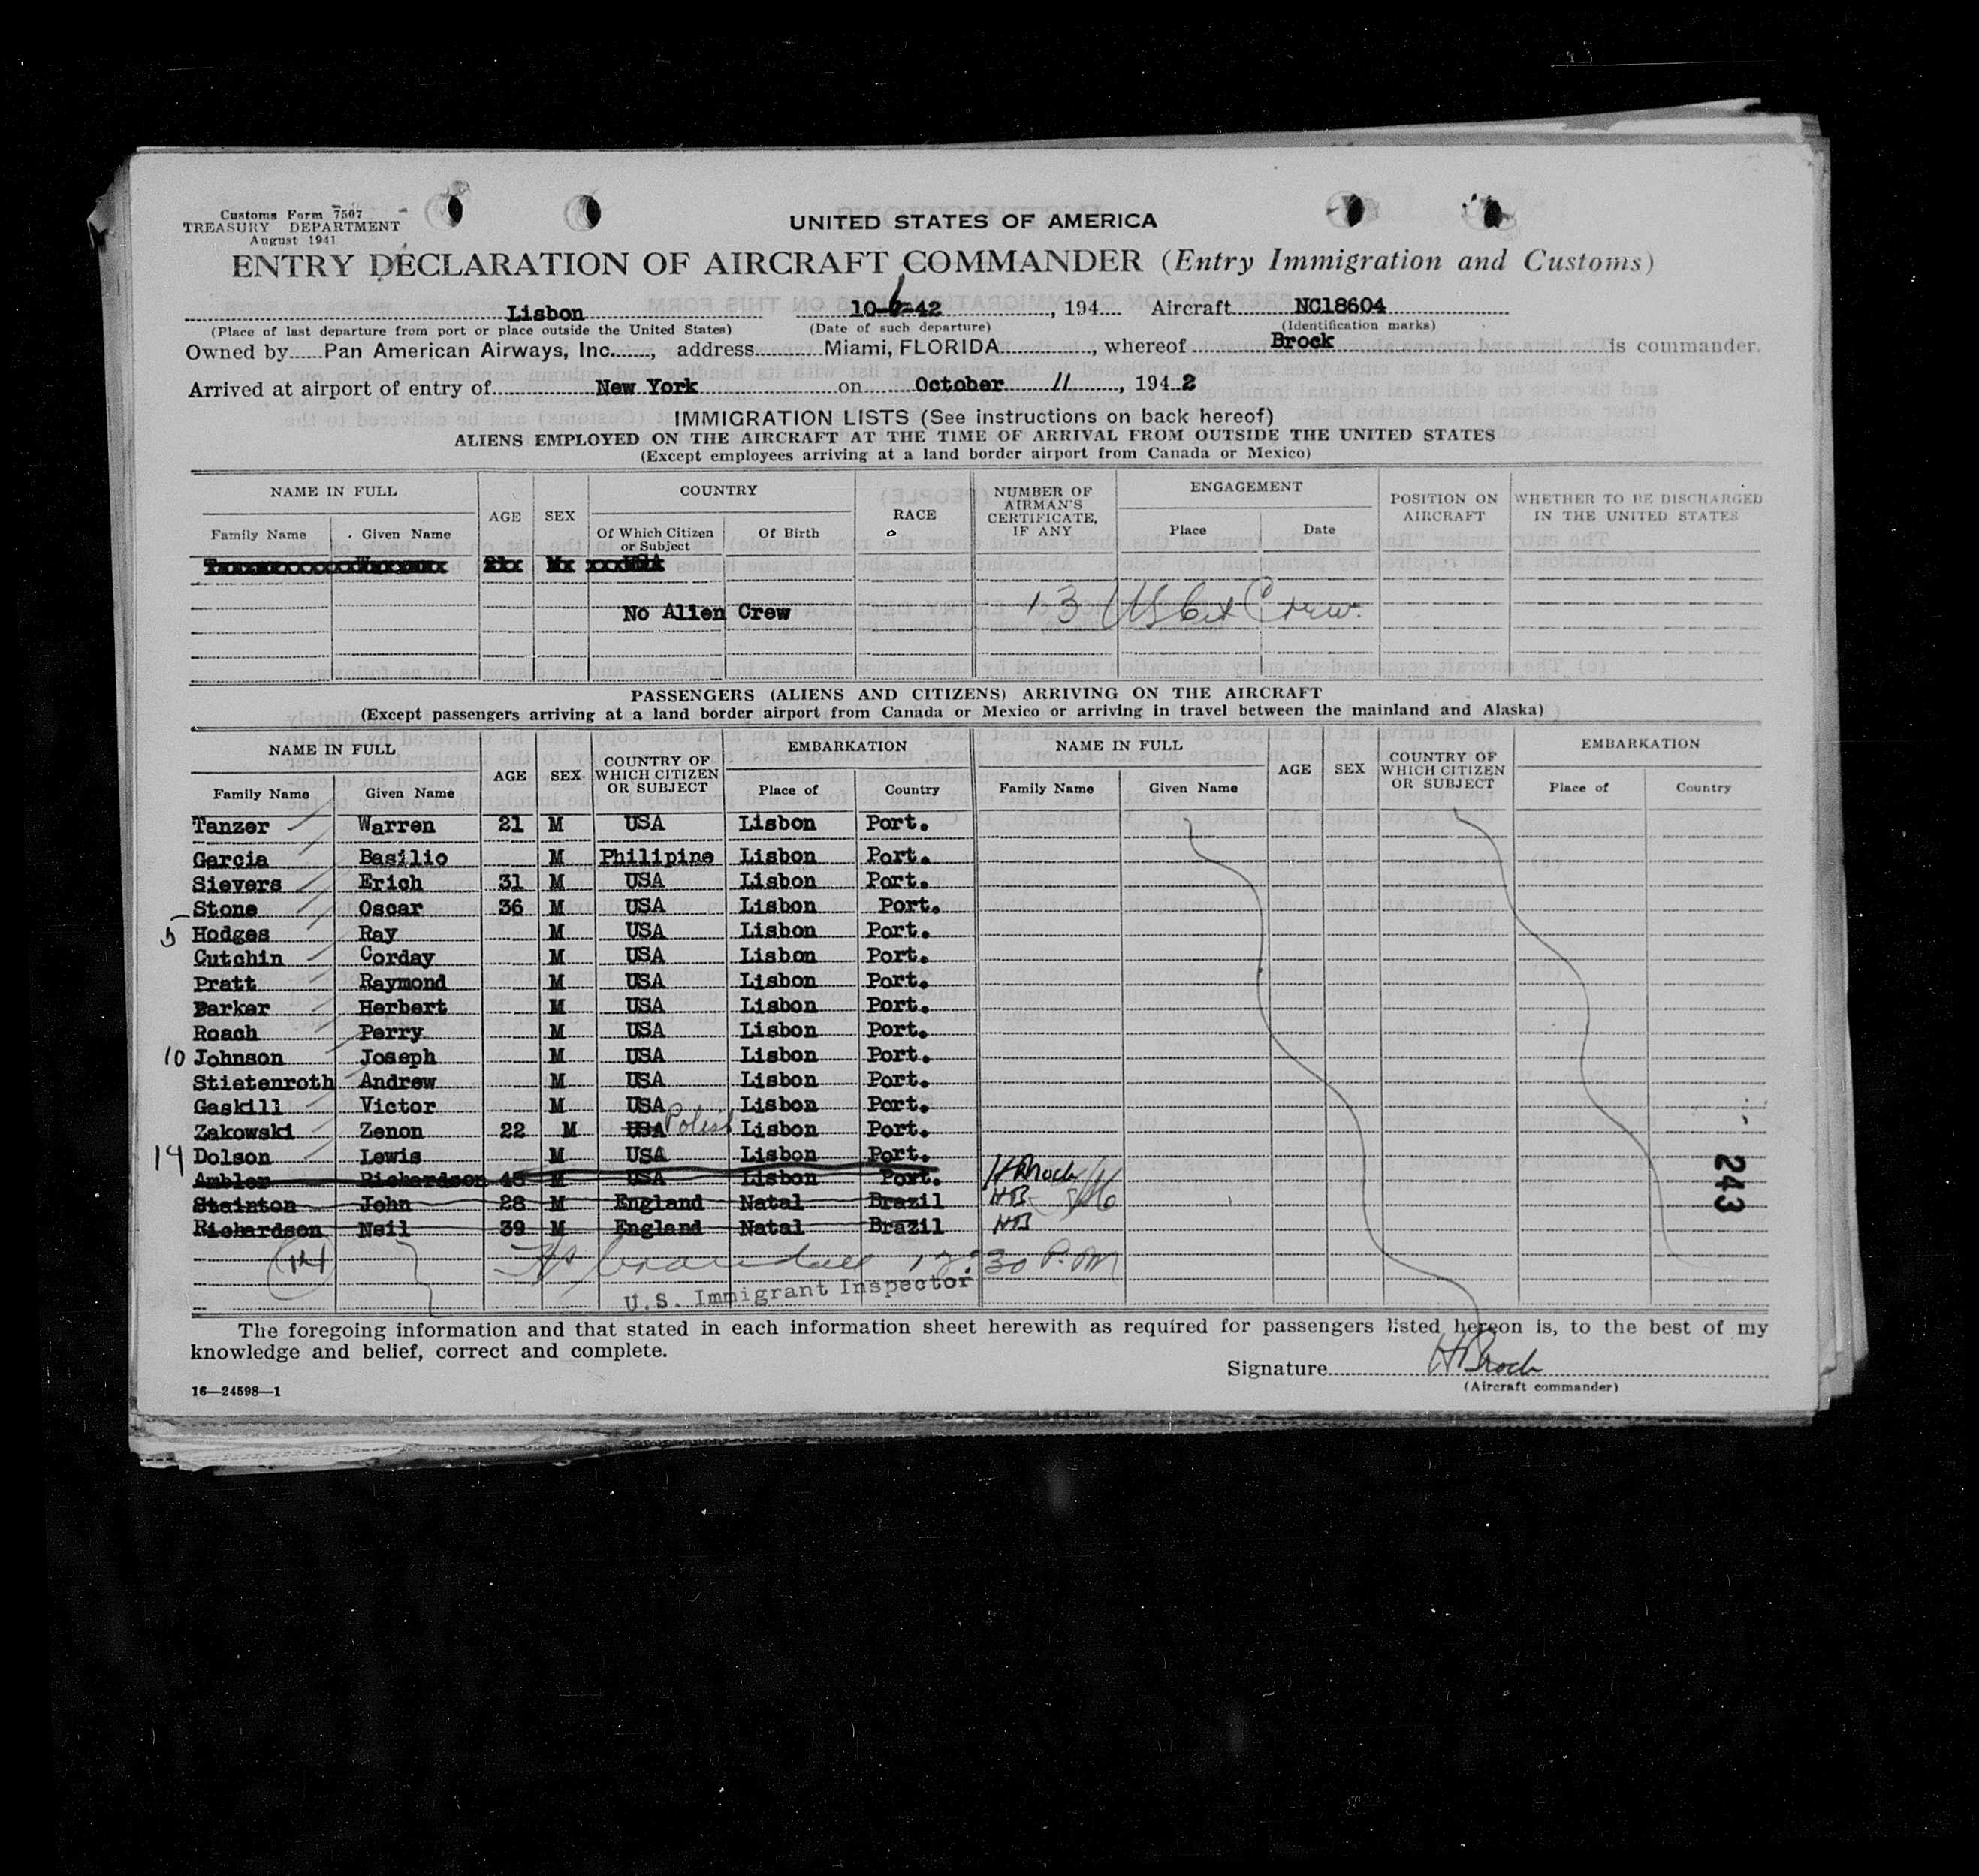 Customs Form 7507
TREASURY DEPARTMENT
August 1941
UNITED STATES OF AMERICA
ENTRY DECLARATION OF AIRCRAFT COMMANDER (Entry Immigration and Customs)
Lisbon 10-6-42, 194 Aircraft NC18604
(Place of last departure from port or place outside the United States) (Date of such departure) (Identification marks)
Owned by Pan American Airways, Inc., address Miami, FLORIDA, whereof Brock is commander.
Arrived at airport of entry of New York on October 11, 1942
IMMIGRATION LISTS (See instructions on back hereof)
ALIENS EMPLOYED ON THE AIRCRAFT AT THE TIME OF ARRIVAL FROM OUTSIDE THE UNITED STATES
(Except employees arriving at a land border airport from Canada or Mexico)
NAME IN FULL AGE SEX COUNTRY RACE NUMBER OF AIRMAN'S CERTIFICATE, IF ANY ENGAGEMENT POSITION ON AIRCRAFT WHETHER TO BE DISCHARGED IN THE UNITED STATES
Family Name Given Name Of Which Citizen or Subject Of Birth Place Date
No Alien Crew 13 US Cit Crew
PASSENGERS (ALIENS AND CITIZENS) ARRIVING ON THE AIRCRAFT
(Except passengers arriving at a land border airport from Canada or Mexico or arriving in travel between the mainland and Alaska)
NAME IN FULL AGE SEX COUNTRY OF WHICH CITIZEN OR SUBJECT EMBARKATION NAME IN FULL AGE SEX COUNTRY OF WHICH CITIZEN OR SUBJECT EMBARKATION
Family Name Given Name Place of Country Family Name Given Name Place of Country
Tanzer Warren 21 M USA Lisbon Port.
Garcia Basilio M Philipine Lisbon Port.
Sievers Erich 31 M USA Lisbon Port.
Stone Oscar 36 M USA Lisbon Port.
5 Hodges Ray M USA Lisbon Port.
Cutchin Corday M USA Lisbon Port.
Pratt Raymond M USA Lisbon Port.
Barker Herbert M USA Lisbon Port.
Roach Perry M USA Lisbon Port.
10 Johnson Joseph M USA Lisbon Port.
Stietenroth Andrew M USA Lisbon Port.
Gaskill Victor M USA Lisbon Port.
Zakowski Zenon 22 M USA Polish Lisbon Port.
14 Dolson Lewis M USA Lisbon Port.
Ambler Richardson 48 M USA Lisbon Port. HBrock
Stainton John 28 M England Natal Brazil HB
Richardson Neil 39 M England Natal Brazil HB
14 12:30 P.M
U.S. Immigrant Inspector
243
The foregoing information and that stated in each information sheet herewith as required for passengers listed hereon is, to the best of my
knowledge and belief, correct and complete.
Signature HBrock
(Aircraft commander)
16—24598—1